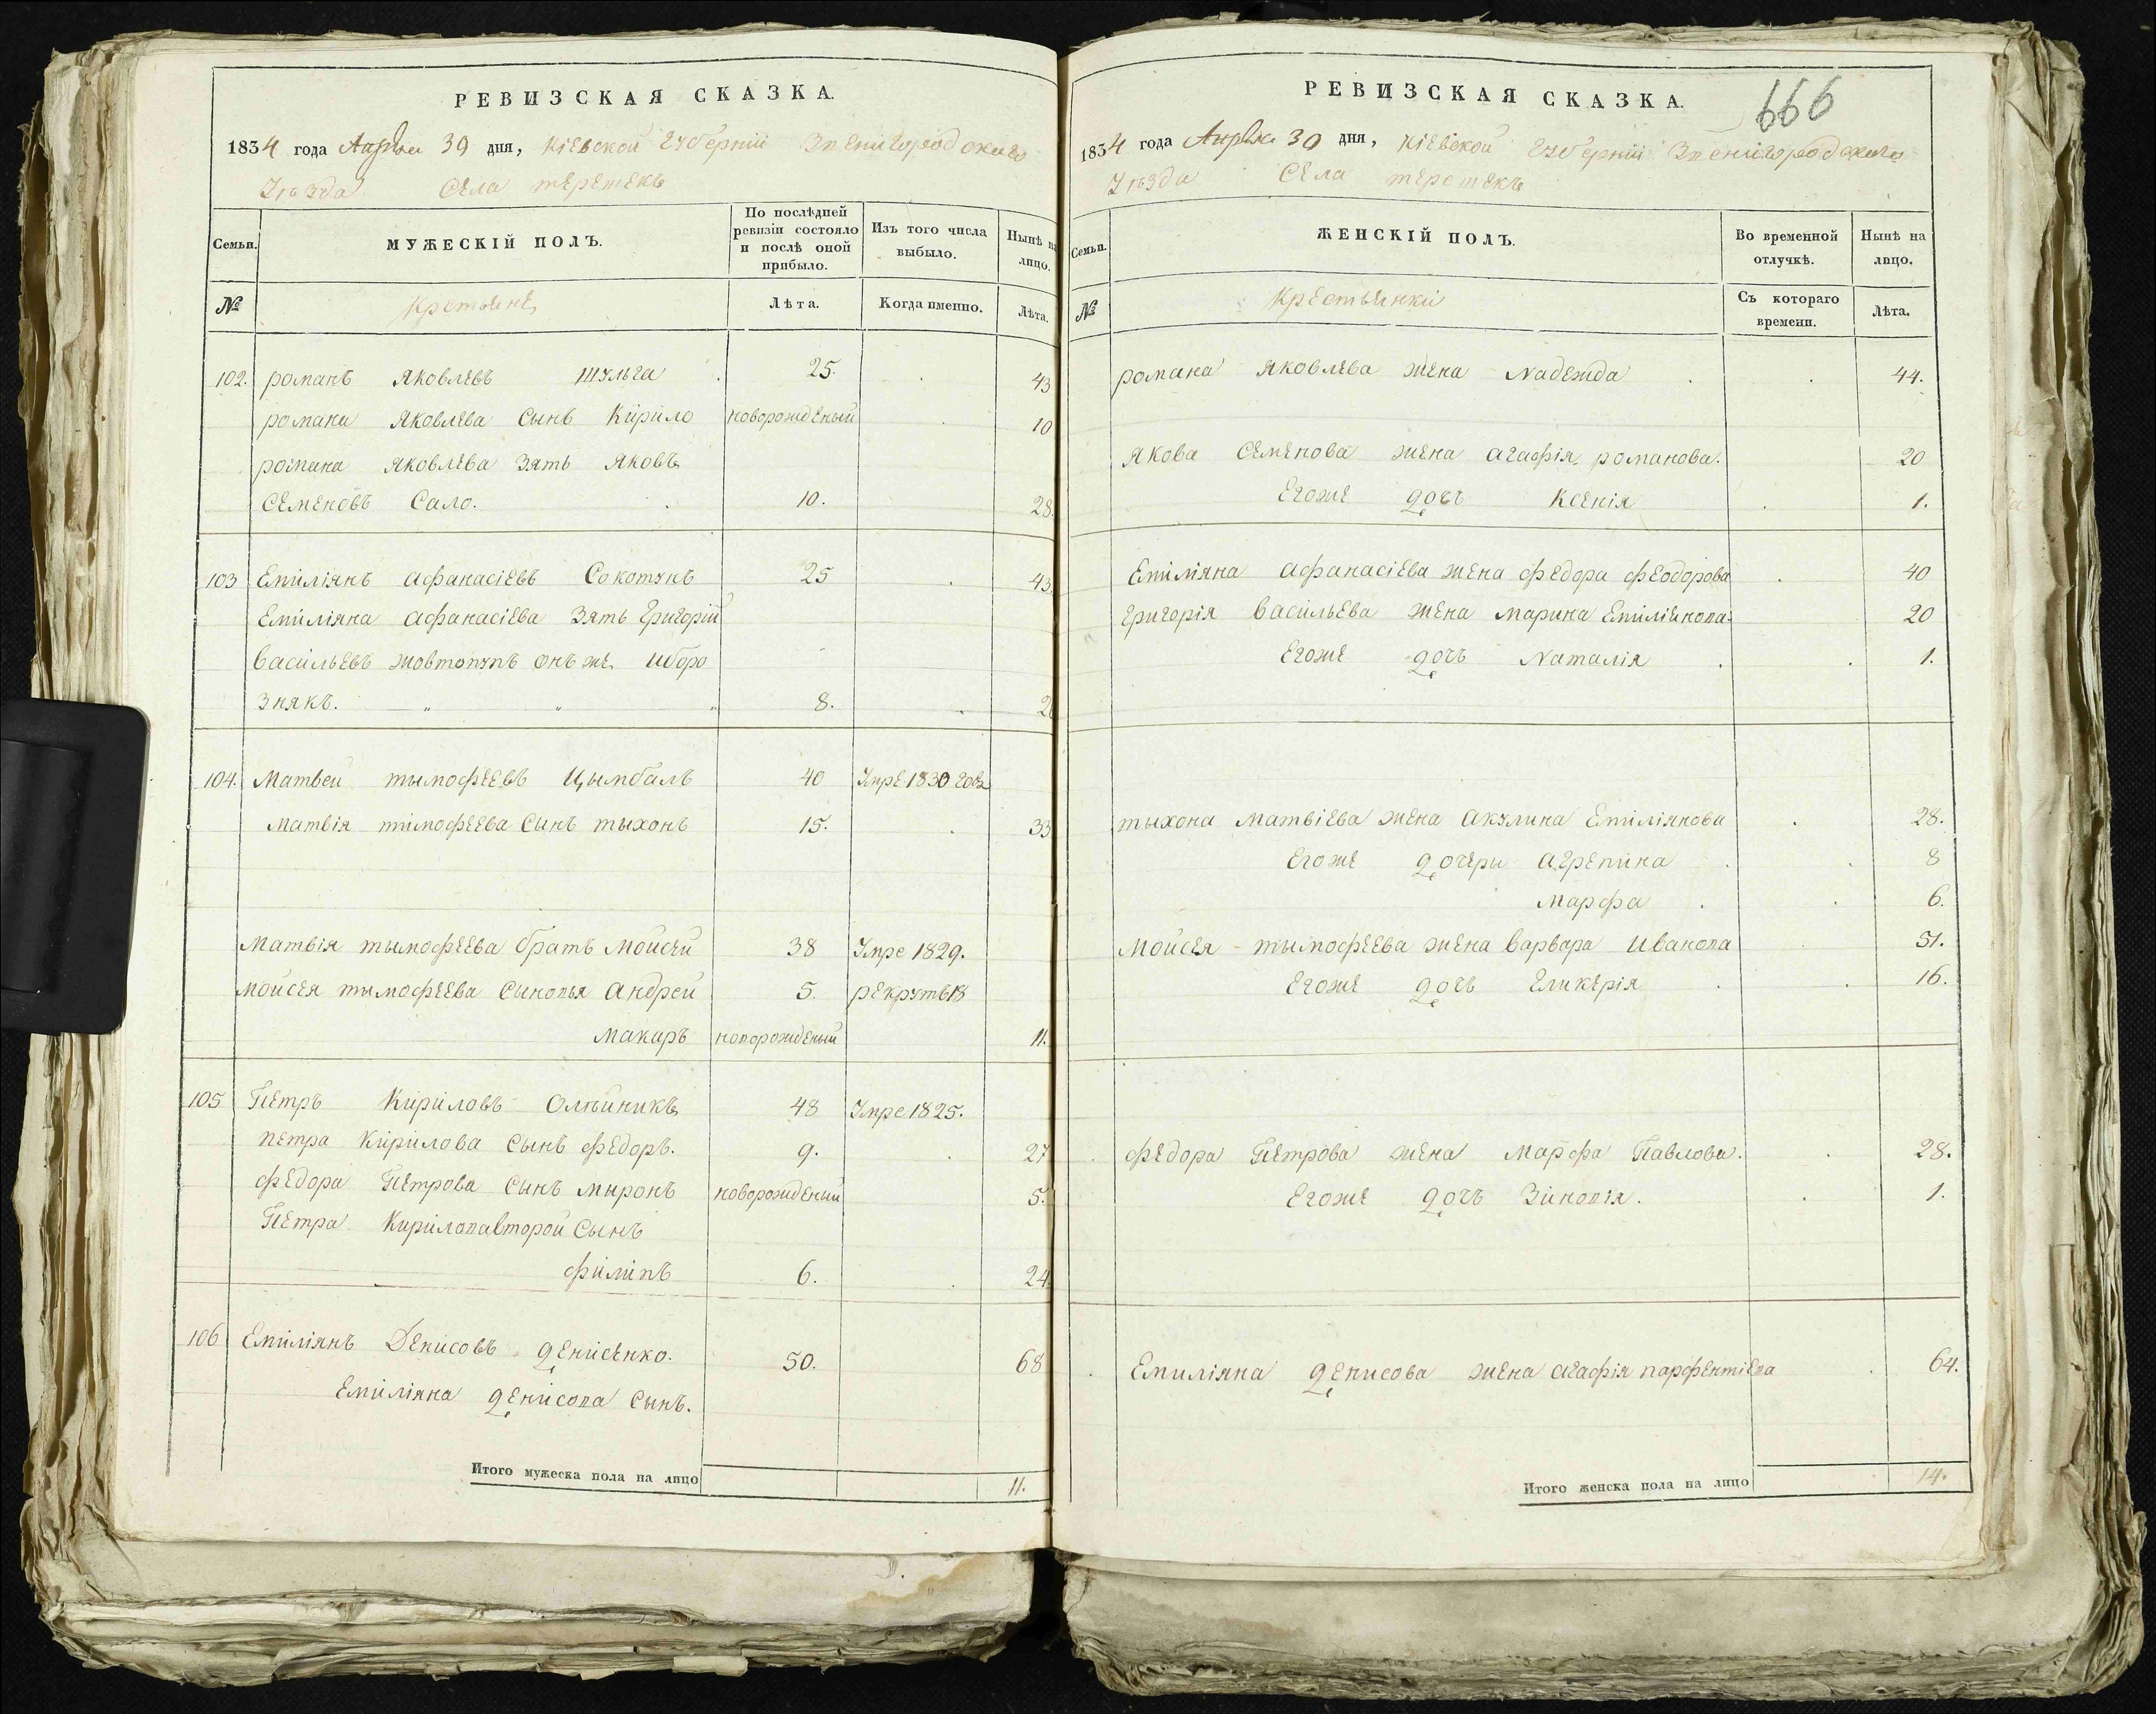 РЕВИЗСКАЯ СКАЗКА.
1834 года Апреля 30 дня, Кіевской Губерніи Звенигородскаго
Уезда Села терешекъ
Семьи. МУЖЕСКІЙ ПОЛЪ. По послѣдней ревизіи состояло и послѣ оной прибыло. Изъ того числа выбыло. Нынѣ на лицо.
№ Крестьяне Лѣта. Когда именно. Лѣта.
102. романъ Яковлевъ шульга 25. 43
романа Яковлева Сынъ Кирило новорожденый 10
романа Яковлева Зять Яковъ
Семеновъ Сало. 10. 28.
103 Емиліянъ афанасіевъ Сокотунъ 25 43.
Емиліяна афанасіева Зять Григорій
васильевъ жовтопупъ онъ же иборо
знякъ. 8. 2
104. Матвей тымофеевъ Цымбалъ 40 Умре 1830 года
Матвія тимофеева Сынъ тыхонъ 15. 33
Матвія тымофеева братъ Мойсей 38 Умре 1829.
мойсея тымофеева Сыновья андрей 5. рекрутъ 18
Макаръ новорожденый 11.
105 Петръ Кириловъ Олейникъ 48 Умре 1825.
петра Кирилова Сынъ федоръ. 9. 27
федора Петрова Сынъ миронъ новорожденый 5.
Петра Кирилова второй Сынъ
филипъ 6. 24.
106 Емиліянъ Денисовъ денисенко. 50. 68
Емиліяна денисова Сынъ.
Итого мужеска пола на лицо 11.
666
РЕВИЗСКАЯ СКАЗКА.
1834 года Апреля 30 дня, Кіевской Губерніи Звенигородскаго
Уезда Села терешекъ
Семьи. ЖЕНСКІЙ ПОЛЪ. Во временной отлучкѣ. Нынѣ на лицо.
№ Крестьянки Съ котораго времени. Лѣта.
романа Яковлева жена Надежда 44.
Якова Семенова жена агафія романова. 20
Егоже дочъ Ксенія 1.
Емиліяна афанасіева жена федора феодорова 40
григорія васильева жена марина Емиліянова. 20
Егоже дочъ Наталія 1.
тыхона Матвіева жена акулина Емиліянова 28.
Егоже дочери агрепина 8
марфа 6.
Мойсея тымофеева жена варвара иванова 51.
Егоже дочъ Гликерія 16.
федора Петрова жена марфа Павлова. 28.
Егоже дочъ Зиновія. 1.
Емиліяна денисова жена агафія парфентіева 64.
Итого женска пола на лицо 14.